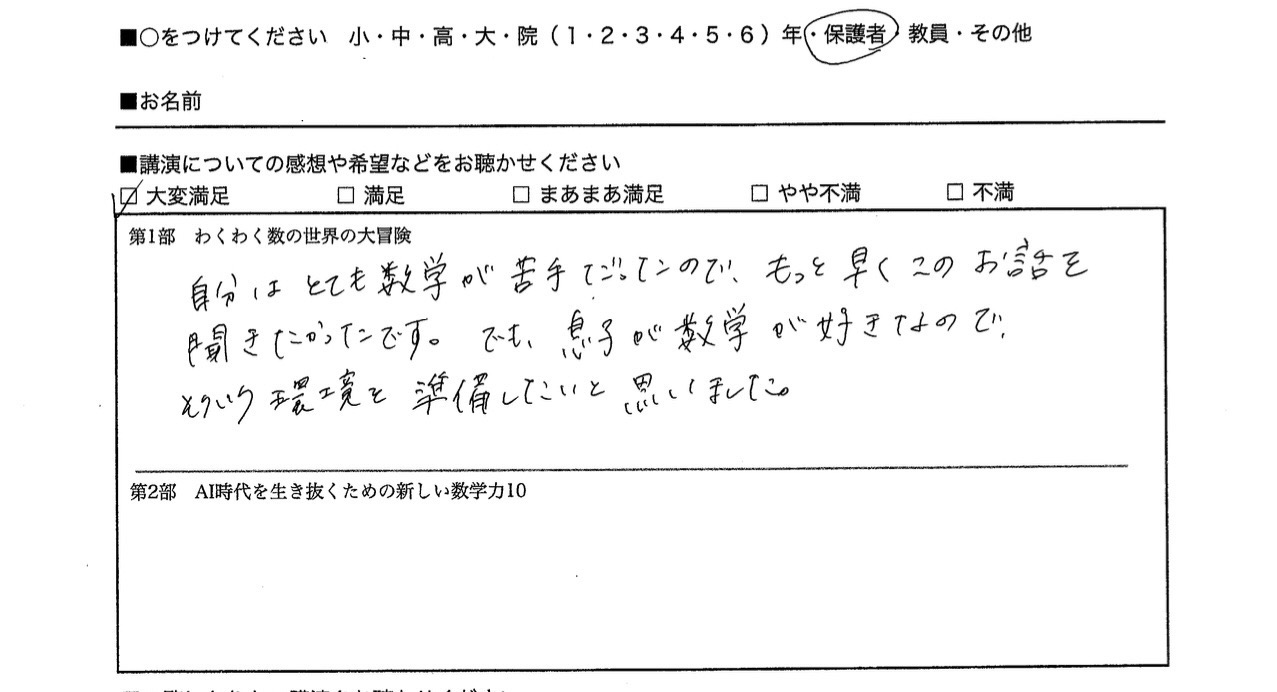 ■○をつけてください 小・中・高・大・院（1・2・3・4・5・6）年・保護者・教員・その他
■お名前
■講演についての感想や希望などをお聴かせください
□ 大変満足 □ 満足 □ まあまあ満足 □ やや不満 □ 不満
第1部 わくわく数の世界の大冒険
自分はとても数学が苦手だったので、もっと早くこのお話を
聞きたかったです。でも、息子が数学が好きなので、
そういう環境を準備したいと思いました。
第2部 AI時代を生き抜くための新しい数学力10